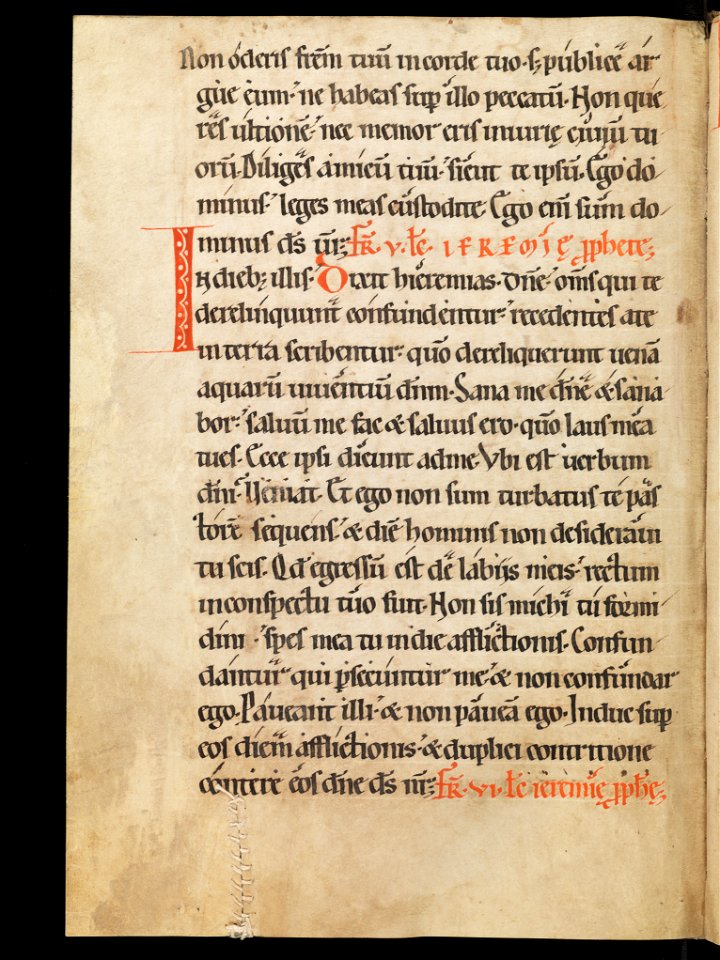 Non oderis frēm tuū in corde tuo · s; publicę ar
gue eum · ne habeas sup̄ illo peccatū · Non quę
res ultionē · nec memor eris iniurię ciuiū tu
orū · Diliges amicū tuū · sicut te ipsū · Ego do
minus · leges meas custodite · Ego em̄ sum do
minus ds̄ ur̄; fr̄ · v · łc̄ · IEREMIĘ ꝓphete;
In dieb; illis · Dixit hieremias · Dn̄e · om̄s qui te
derelinquunt confundentur · recedentes a te
in terra scribentur · quo᷑ dereliquerunt uenā
aquarū uiuentiū dn̄m · Sana me dn̄e & sana
bor · saluū me fac & saluus ero · quo᷑ laus mea
tu es · Ecce ipsi dicunt ad me · Vbi est uerbum
dn̄i · Veniat · Et ego non sum turbatus te pas
torē sequens · & diē hominis non desideraui
tu scis · Qd̄ egressū est de labiis meis · rectum
in conspectu tuo fuit · Non sis michi tu formi
dini · spes mea tu in die afflictionis · Confun
dantur qui ꝑsecuntur me · & non confundar
ego · Paueant illi · & non paueā ego · Induc sup̄
eos diem afflictionis · & duplici contritione
contere eos dn̄e ds̄ nr̄; fr̄ · vi · łc̄ ieremię ꝓphę;